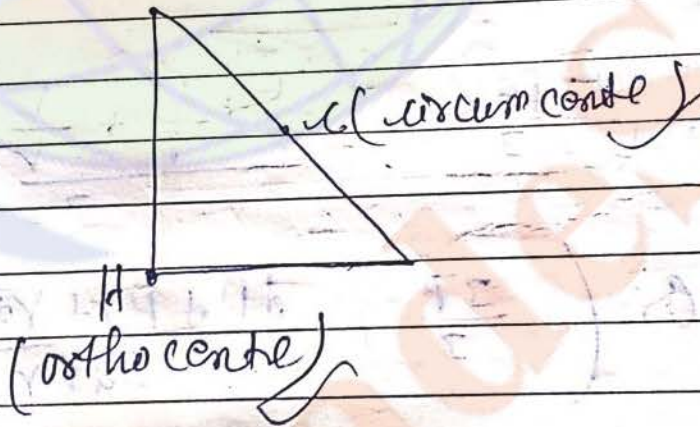 C (circumcentre)
H
(orthocentre)